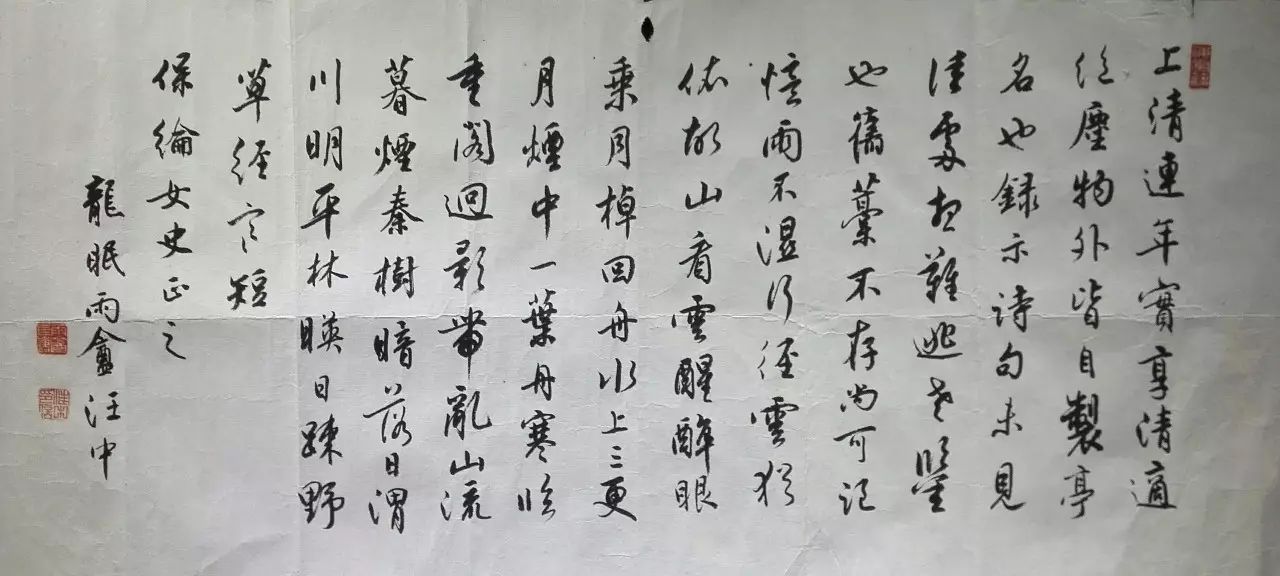 上清連年實享清適
絕塵物外皆自製亭
名也錄示詩句未見
佳處想難逃老鑒
也舊藁不存尚可記
憶雨不濕行徑雲猶
依故山看雲醒醉眼
乘月棹回舟水上三更
月煙中一葉舟寒臨
重閣迥影帶亂山流
暮煙秦樹暗落日渭
川明平林暎日疎野
草經宮短
保綸女史正之
龍眠雨盦汪中